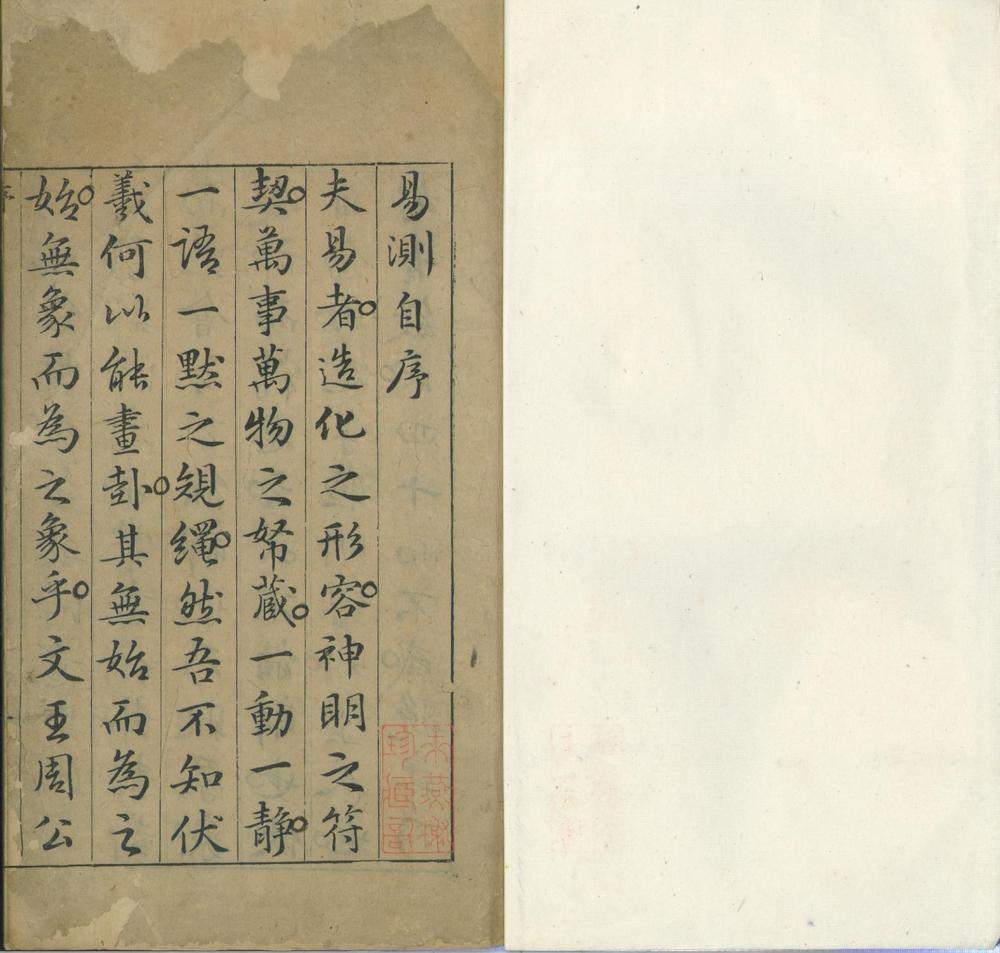 易測自序
夫易者造化之形容神明之符
契萬事萬物之帑藏一動一靜
一語一默之規繩然吾不知伏
羲何以能畫卦其無始而為之
始無象而為之象乎文王周公